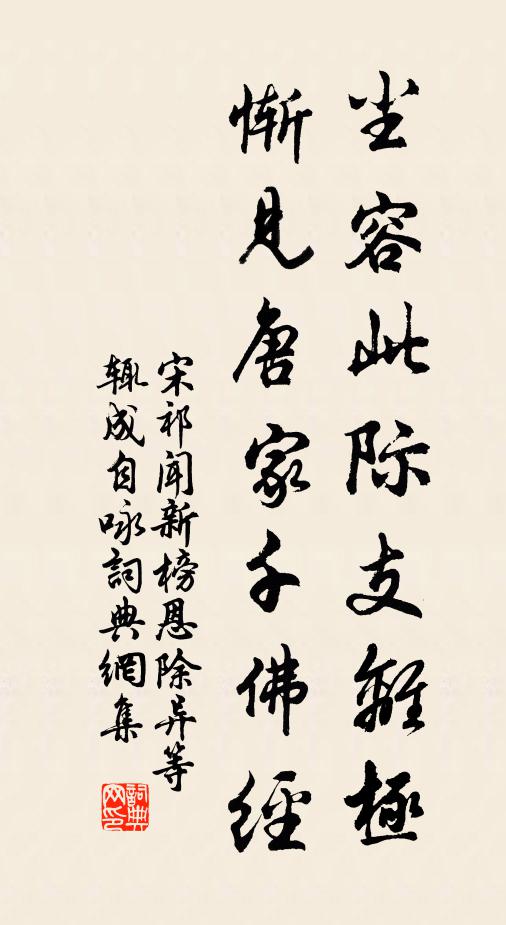 尘容此际支離極
慚見唐家千佛經
宋祁闻新榜恩除异等
輒成自咏詞典網集
詞典
网印